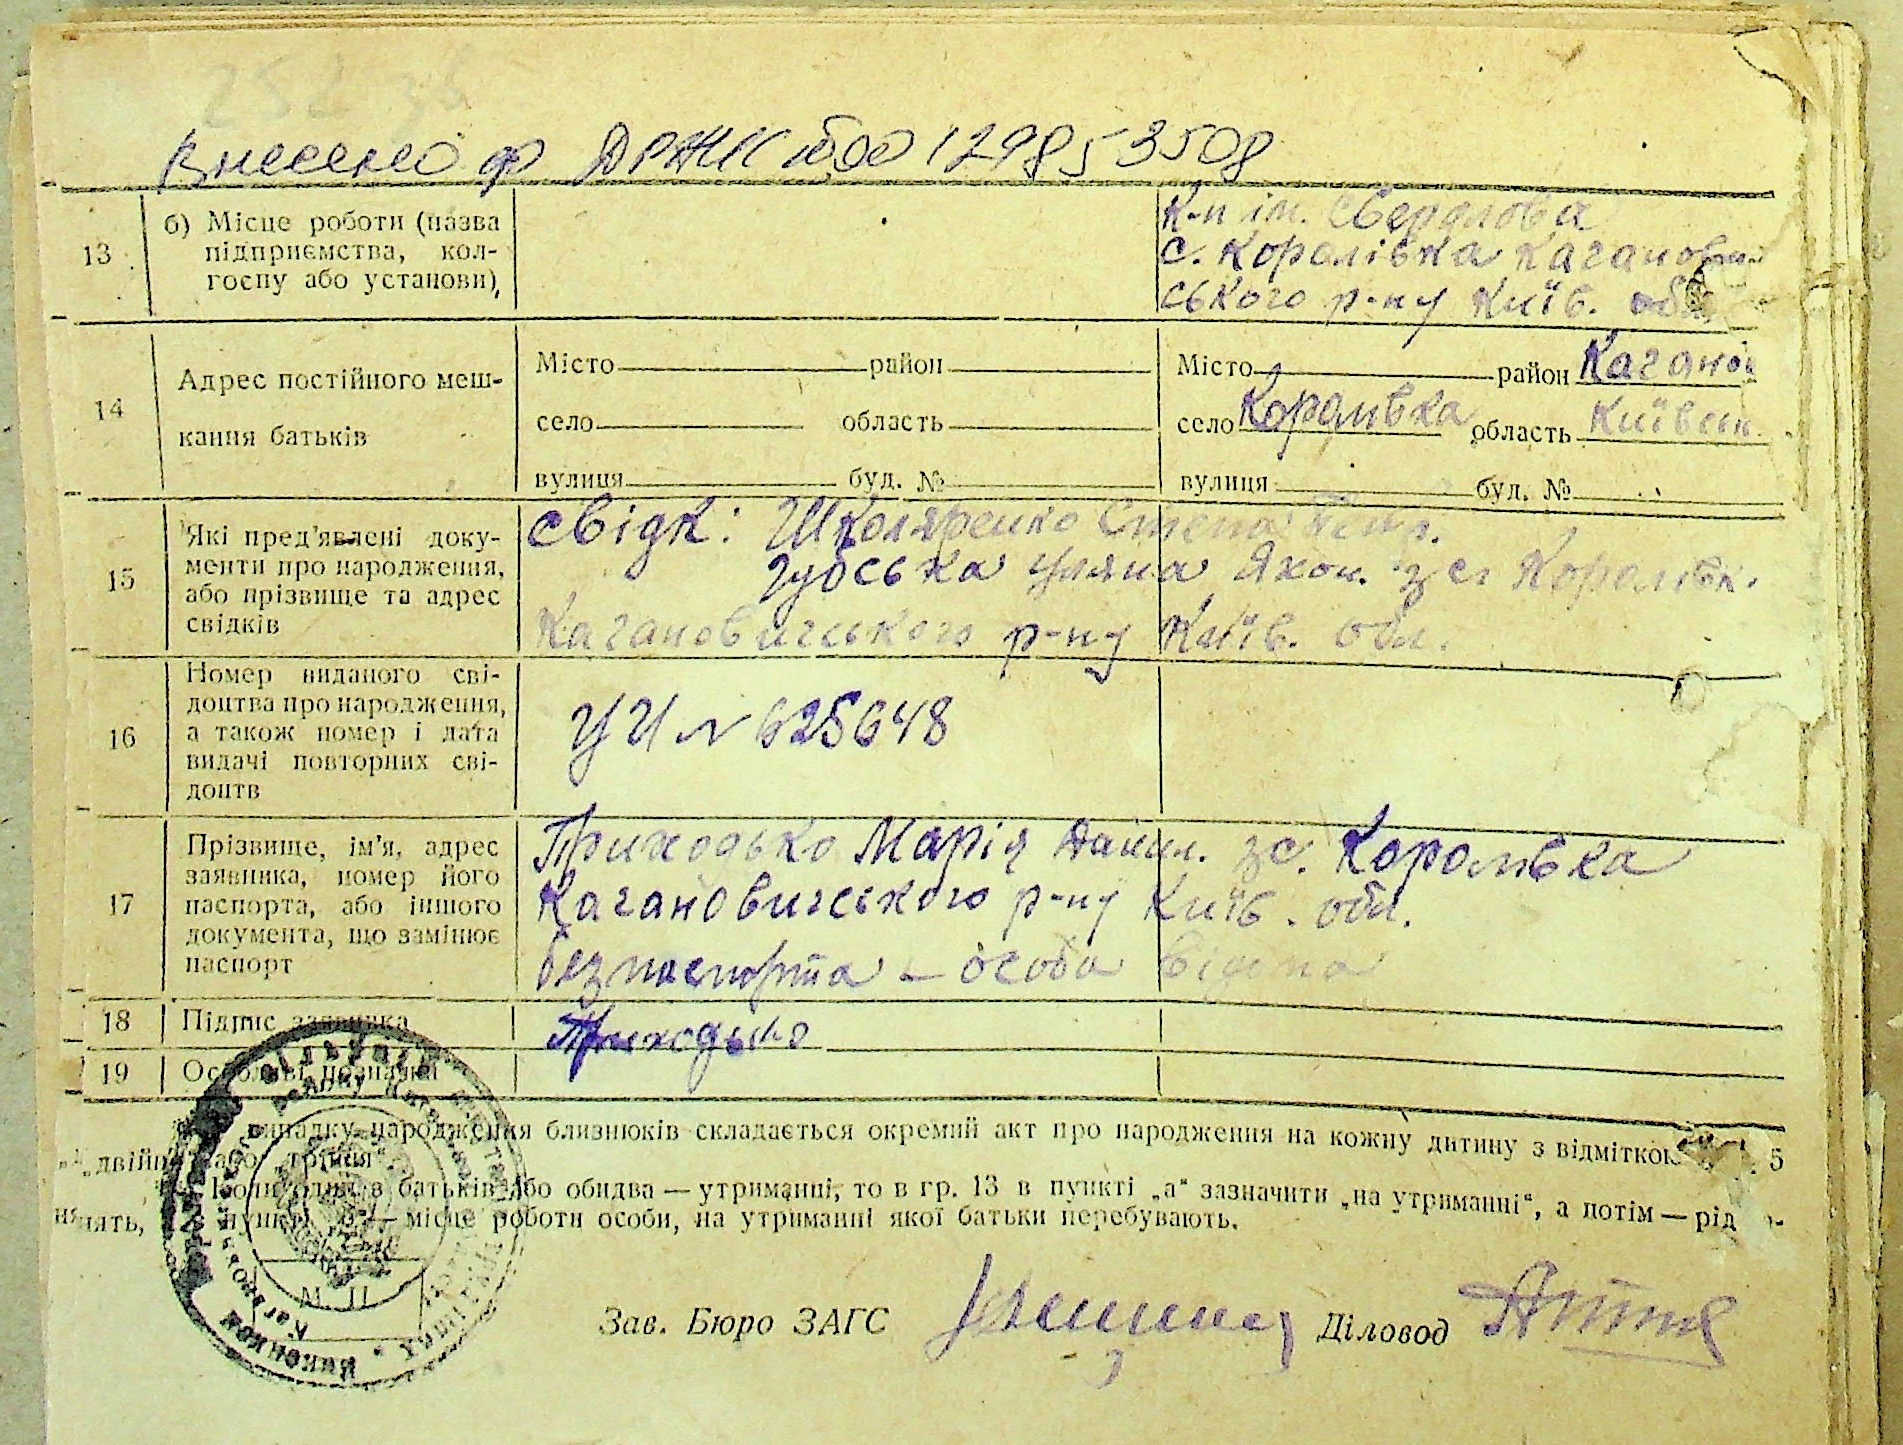 Внесено ф ДРЖК №00129853508
13 б) Місце роботи (назва підприємства, колгоспу або установи)
К-п ім. Свердлова
с. Королівка Каганови-
ського р-ну Київ. обл.
14 Адрес постійного мешкання батьків
Місто район Місто район Каганов
село область село Королівка область Київськ
вулиця буд. № вулиця буд. №
15 Які пред'явлені документи про народження, або прізвище та адрес свідків
свідк: Школяренко Степа Петр.
Гуоська Уляна Яков. з с. Королівк.
Кагановичського р-ну Київ. обл.
16 Номер виданого свідоцтва про народження, а також номер і дата видачі повторних свідоцтв
УИ № 625648
17 Прізвище, ім'я, адрес заявника, номер його паспорта, або іншого документа, що замінює паспорт
Приходько Марія Данил. з с. Королівка
Кагановичського р-ну Київ. обл.
без паспорта – особа відома
18 Підпис заявника Приходько
19 Особливі позначки
випадку народження близнюків складається окремий акт про народження на кожну дитину з відміткою 5
„двійня" або „трійня".
Коли один з батьків або обидва — утриманці, то в гр. 13 в пункті „а" зазначити „на утриманні", а потім — рід
занять, пункті „б" — місце роботи особи, на утриманні якої батьки перебувають.
М. П.
Зав. Бюро ЗАГС Діловод